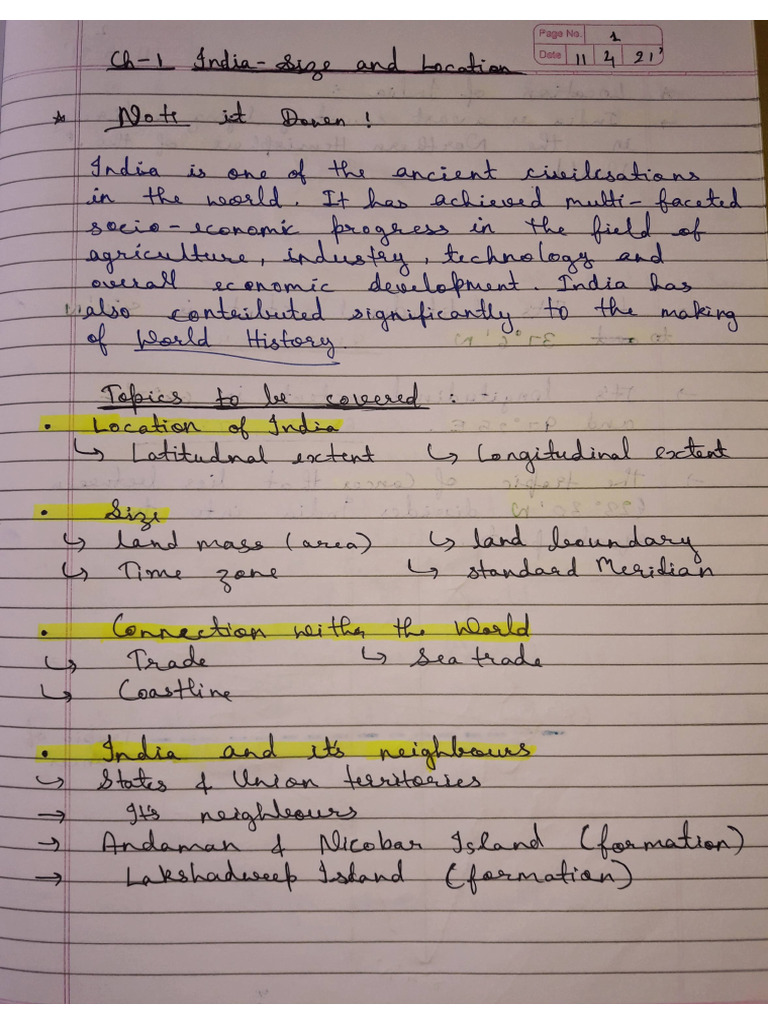 Page No. 1
Date 11 4 21'
Ch-1 India-Size and Location
* Note it Down!
India is one of the ancient civilcsations
in the world. It has achieved multi-faceted
socio-economic progress in the field of
agriculture, industry, technology and
overall economic development. India has
also contributed significantly to the making
of World History.
Topics to be covered:
• Location of India
↳ Latitudnal extent ↳ Longitudinal extent
• Size
↳ land mass (area) ↳ land boundary
↳ Time zone ↳ standard Meridian
• Connection with the World
↳ Trade ↳ Sea trade
↳ Coastline
• India and it's neighbours
↳ States & Union territories
→ It's neighbours
→ Andaman & Nicobar Island (formation)
→ Lakshadweep Island (formation)